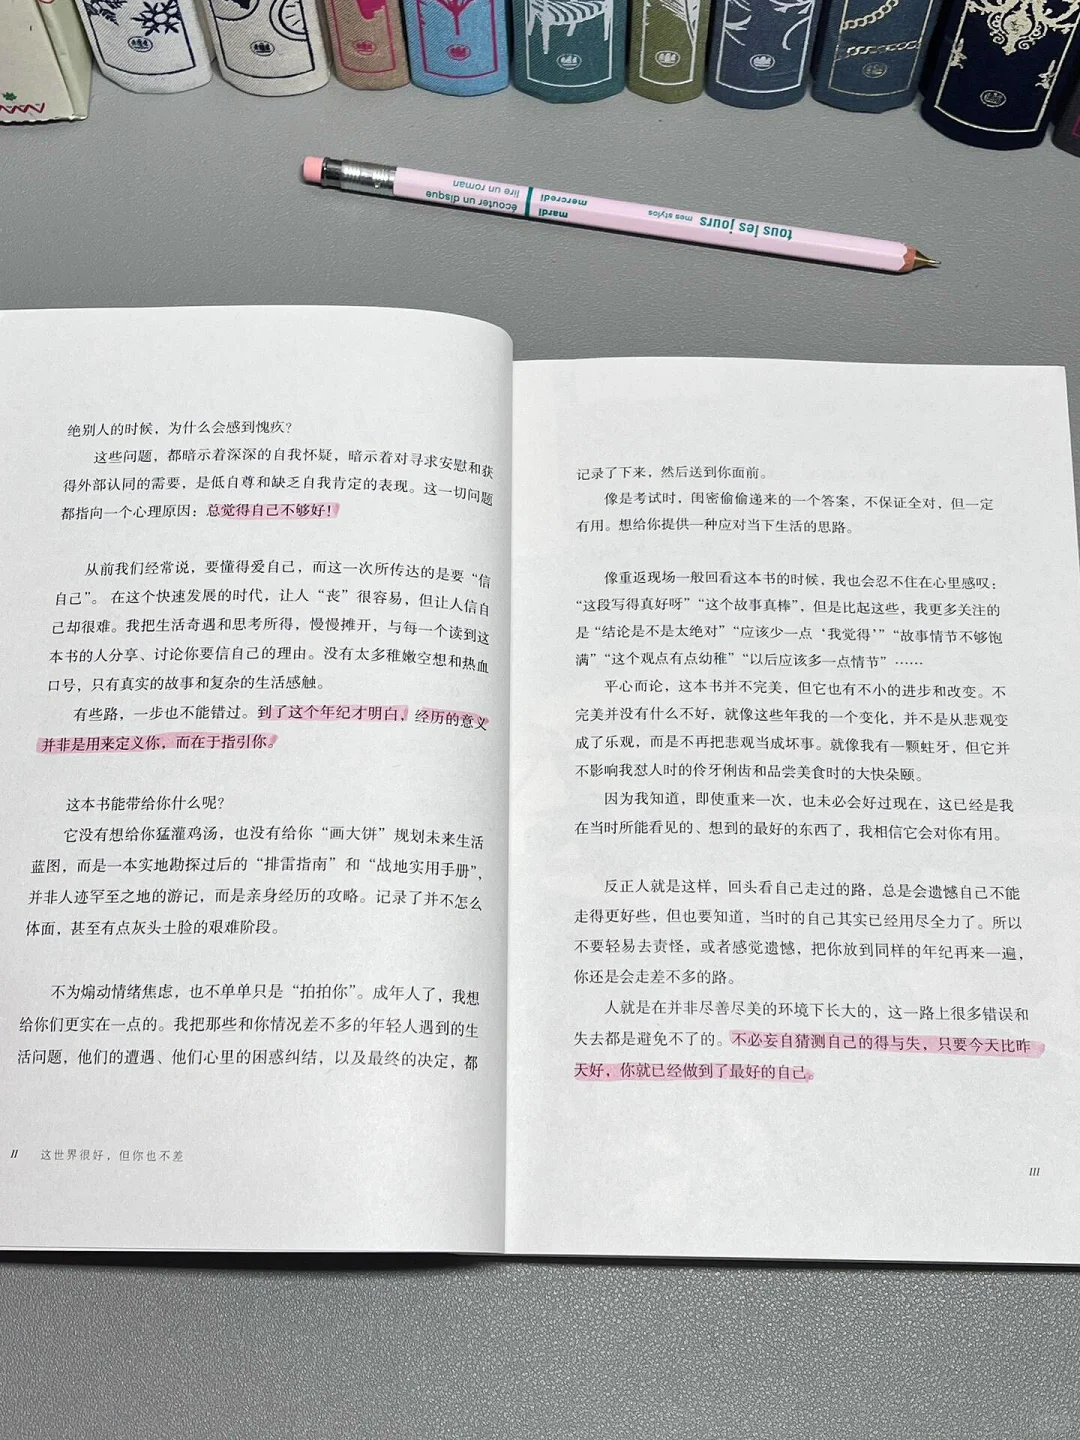 tous les jours mes stylos
mardi
mercredi
écouter un disque
lire un roman
绝别人的时候，为什么会感到愧疚？
这些问题，都暗示着深深的自我怀疑，暗示着对寻求安慰和获
得外部认同的需要，是低自尊和缺乏自我肯定的表现。这一切问题
都指向一个心理原因：总觉得自己不够好！
从前我们经常说，要懂得爱自己，而这一次所传达的是要“信
自己”。在这个快速发展的时代，让人“丧”很容易，但让人信自
己却很难。我把生活奇遇和思考所得，慢慢摊开，与每一个读到这
本书的人分享、讨论你要信自己的理由。没有太多稚嫩空想和热血
口号，只有真实的故事和复杂的生活感触。
有些路，一步也不能错过。到了这个年纪才明白，经历的意义
并非是用来定义你，而在于指引你。
这本书能带给你什么呢？
它没有想给你猛灌鸡汤，也没有给你“画大饼”规划未来生活
蓝图，而是一本实地勘探过后的“排雷指南”和“战地实用手册”，
并非人迹罕至之地的游记，而是亲身经历的攻略。记录了并不怎么
体面，甚至有点灰头土脸的艰难阶段。
不为煽动情绪焦虑，也不单单只是“拍拍你”。成年人了，我想
给你们更实在一点的。我把那些和你情况差不多的年轻人遇到的生
活问题，他们的遭遇、他们心里的困惑纠结，以及最终的决定，都
II 这世界很好，但你也不差
记录了下来，然后送到你面前。
像是考试时，闺密偷偷递来的一个答案，不保证全对，但一定
有用。想给你提供一种应对当下生活的思路。
像重返现场一般回看这本书的时候，我也会忍不住在心里感叹：
“这段写得真好呀”“这个故事真棒”，但是比起这些，我更多关注的
是“结论是不是太绝对”“应该少一点‘我觉得’”“故事情节不够饱
满”“这个观点有点幼稚”“以后应该多一点情节”……
平心而论，这本书并不完美，但它也有不小的进步和改变。不
完美并没有什么不好，就像这些年我的一个变化，并不是从悲观变
成了乐观，而是不再把悲观当成坏事。就像我有一颗蛀牙，但它并
不影响我怼人时的伶牙俐齿和品尝美食时的大快朵颐。
因为我知道，即使重来一次，也未必会好过现在，这已经是我
在当时所能看见的、想到的最好的东西了，我相信它会对你有用。
反正人就是这样，回头看自己走过的路，总是会遗憾自己不能
走得更好些，但也要知道，当时的自己其实已经用尽全力了。所以
不要轻易去责怪，或者感觉遗憾，把你放到同样的年纪再来一遍，
你还是会走差不多的路。
人就是在并非尽善尽美的环境下长大的，这一路上很多错误和
失去都是避免不了的。不必妄自猜测自己的得与失，只要今天比昨
天好，你就已经做到了最好的自己。
III